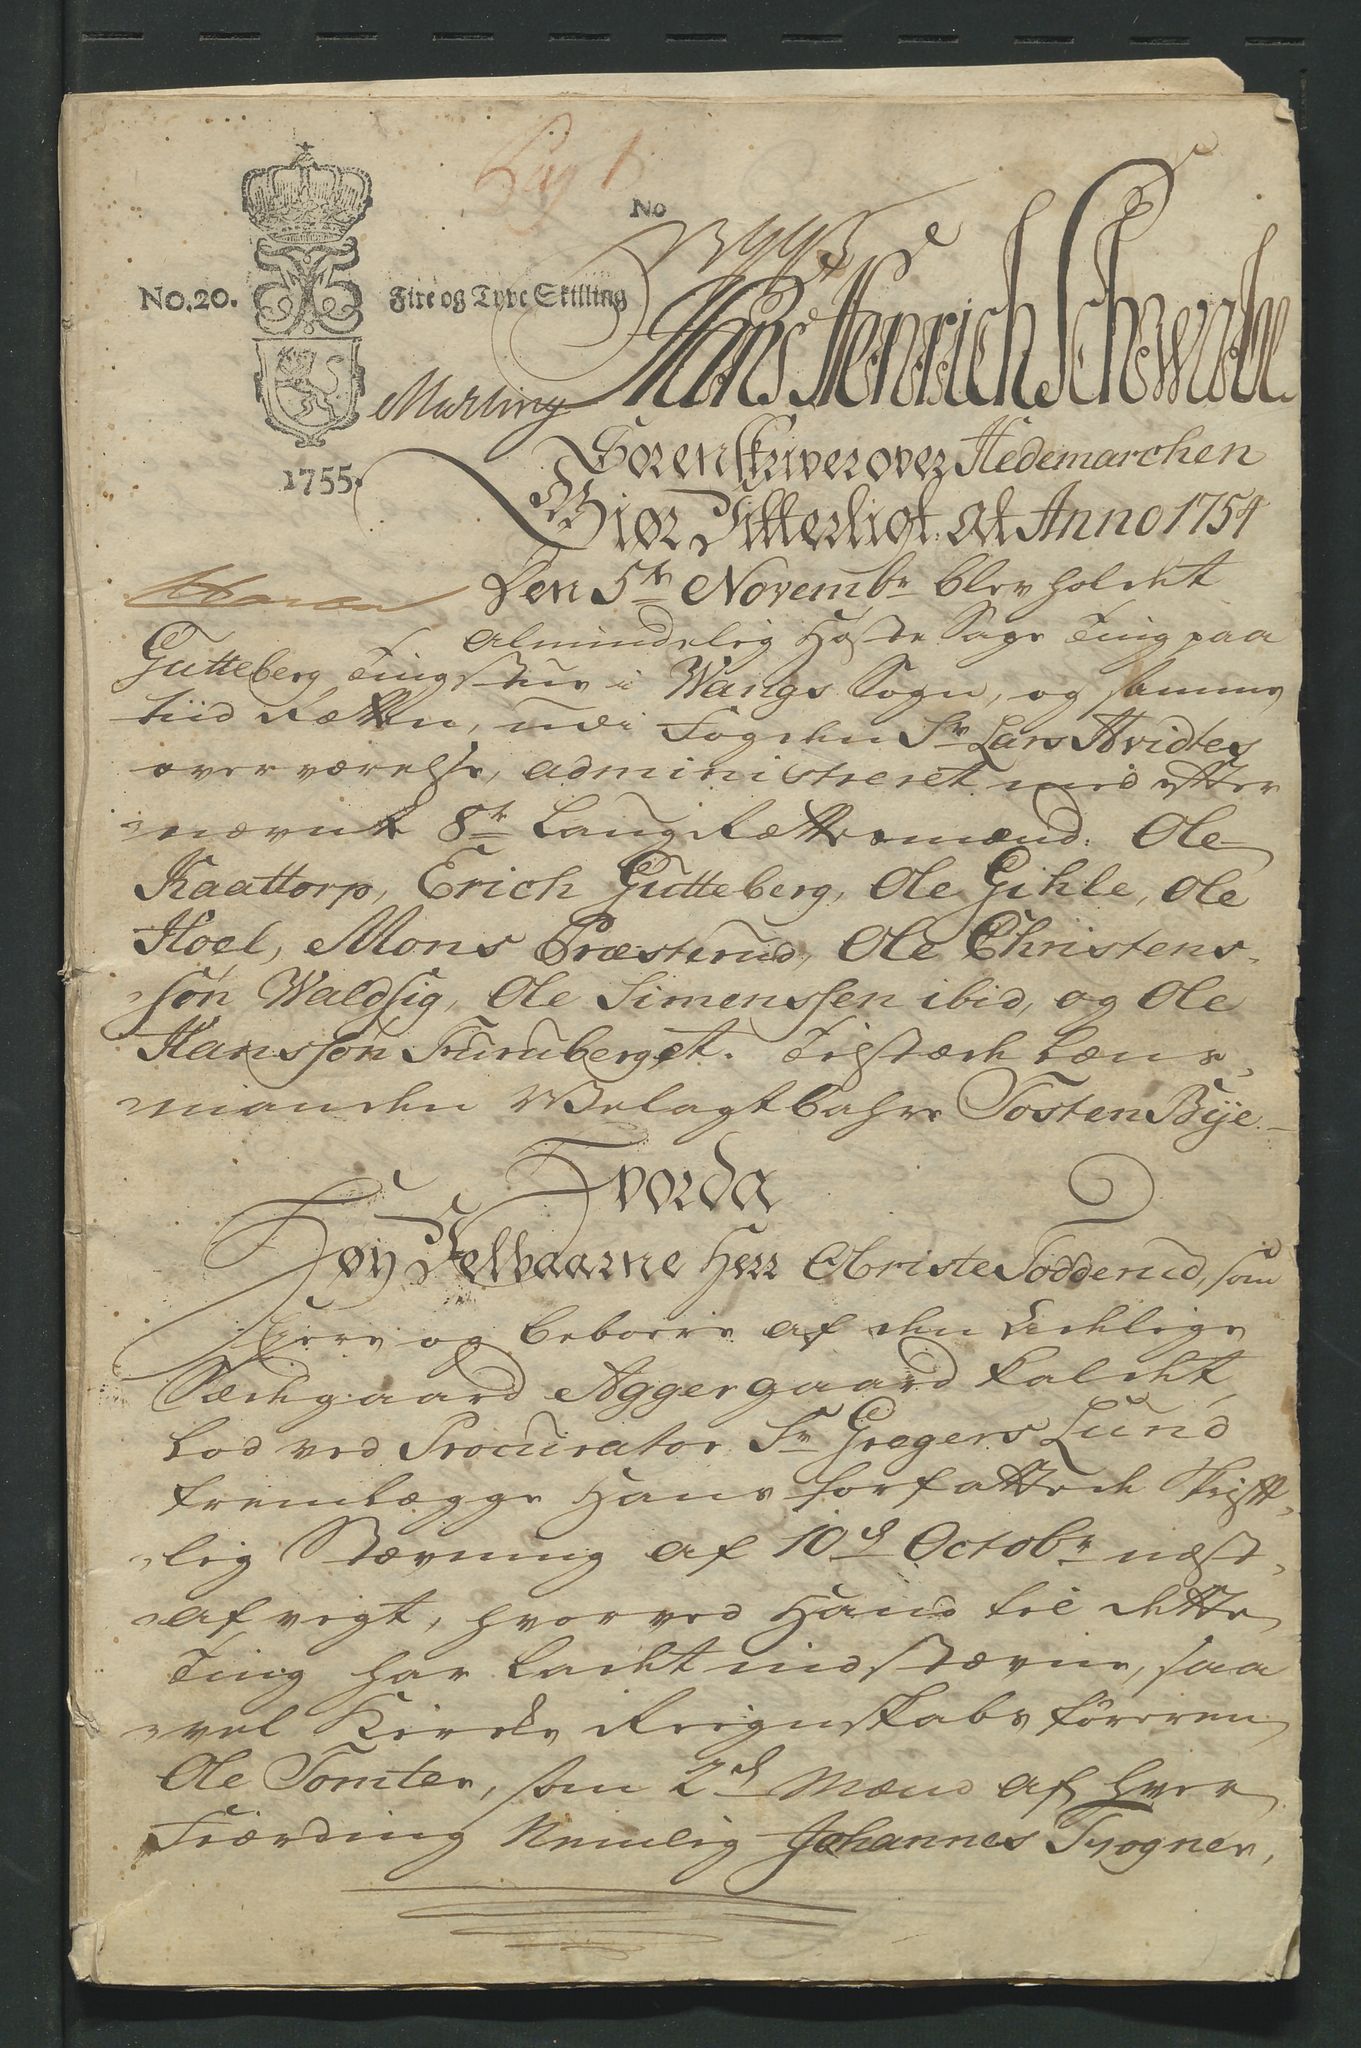 No
No. 20. Fire og Tyve Skilling
1755.
Hans Henrich Schwenke
Sorenskriver over Hedemarchen
Giør Vitterligt at Anno 1754
Den 5te Novembr blev holdet
Almindelig Høste Sage Ting paa
Gutteberg Tingstue i Wangs Sogn, og samme
tiid Retten, udi Fogden Sr Lars Hvidtes
overværelse, administreret med efter
nævnte 8te Laug Rettesmænd. Ole
Kaattorp, Erich Gutteberg, Ole Gihle, Ole
Hoel, Mons Præsterud, Ole Christens-
søn Waldsig, Ole Simenssen ibid, og Ole
Hanssøn Furuberget. Tilstæde Læns-
manden Velagtbahre Tosten Bye
Hvorda
Høy Velbaarne Herr Obriste Todderud, som
Ejere og beboere af den Adelige
Sædegaard Aggergaard kaldet,
Lod ved Procurator Sr Gregers Lund
fremlægge Hans forfattede Skrift-
lig Stævning af 10de Octobr næst-
afvigt, hvorved Hand til dette
Ting har ladet indstævne, saa
vel Kirke Reignskabs føreren
Ole Tomter, som 2de Mænd af hver
Fiærding Nemlig Johannes Tyogner,